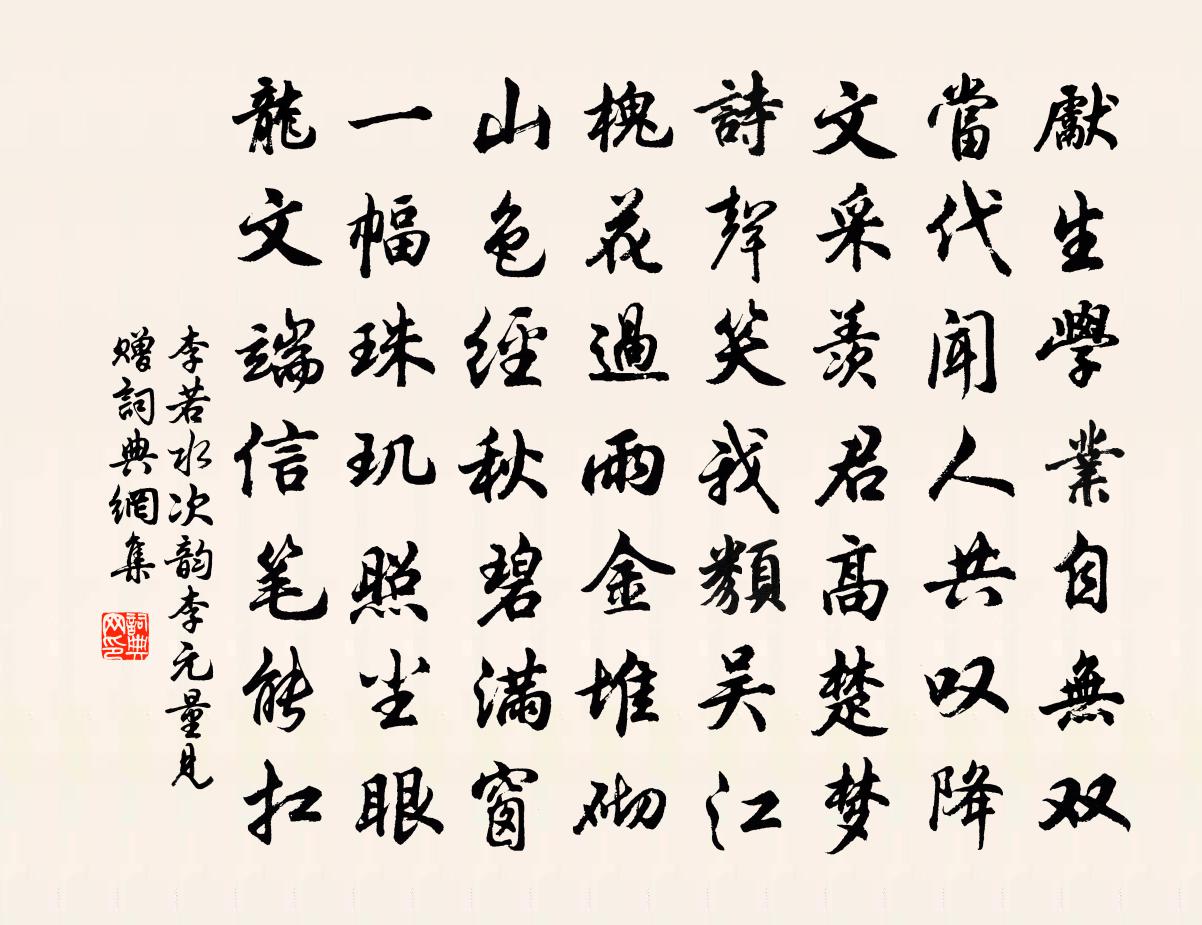 獻生學業自無双
當代聞人共叹降
文采羨君高楚梦
詩聲笑我類吴江
槐花過雨金堆砌
山色經秋碧满窗
一幅珠玑照尘眼
龍文端信笔能扛
李若水次韵李元量見
赠詞典網集
詞典网印